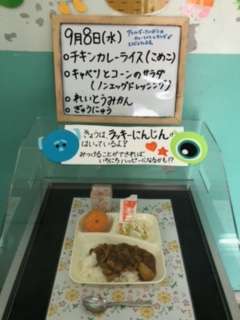 9月8日(水)
○チキンカレーライス(こめこ)
○キャベツとコーンのサラダ
(ノンエッグドレッシング)
○れいとうみかん
○ぎゅうにゅう
きょうは、ラッキーにんじんが
はいっているよ♪
みつけることができれば
いちにちハッピーになるかも!?